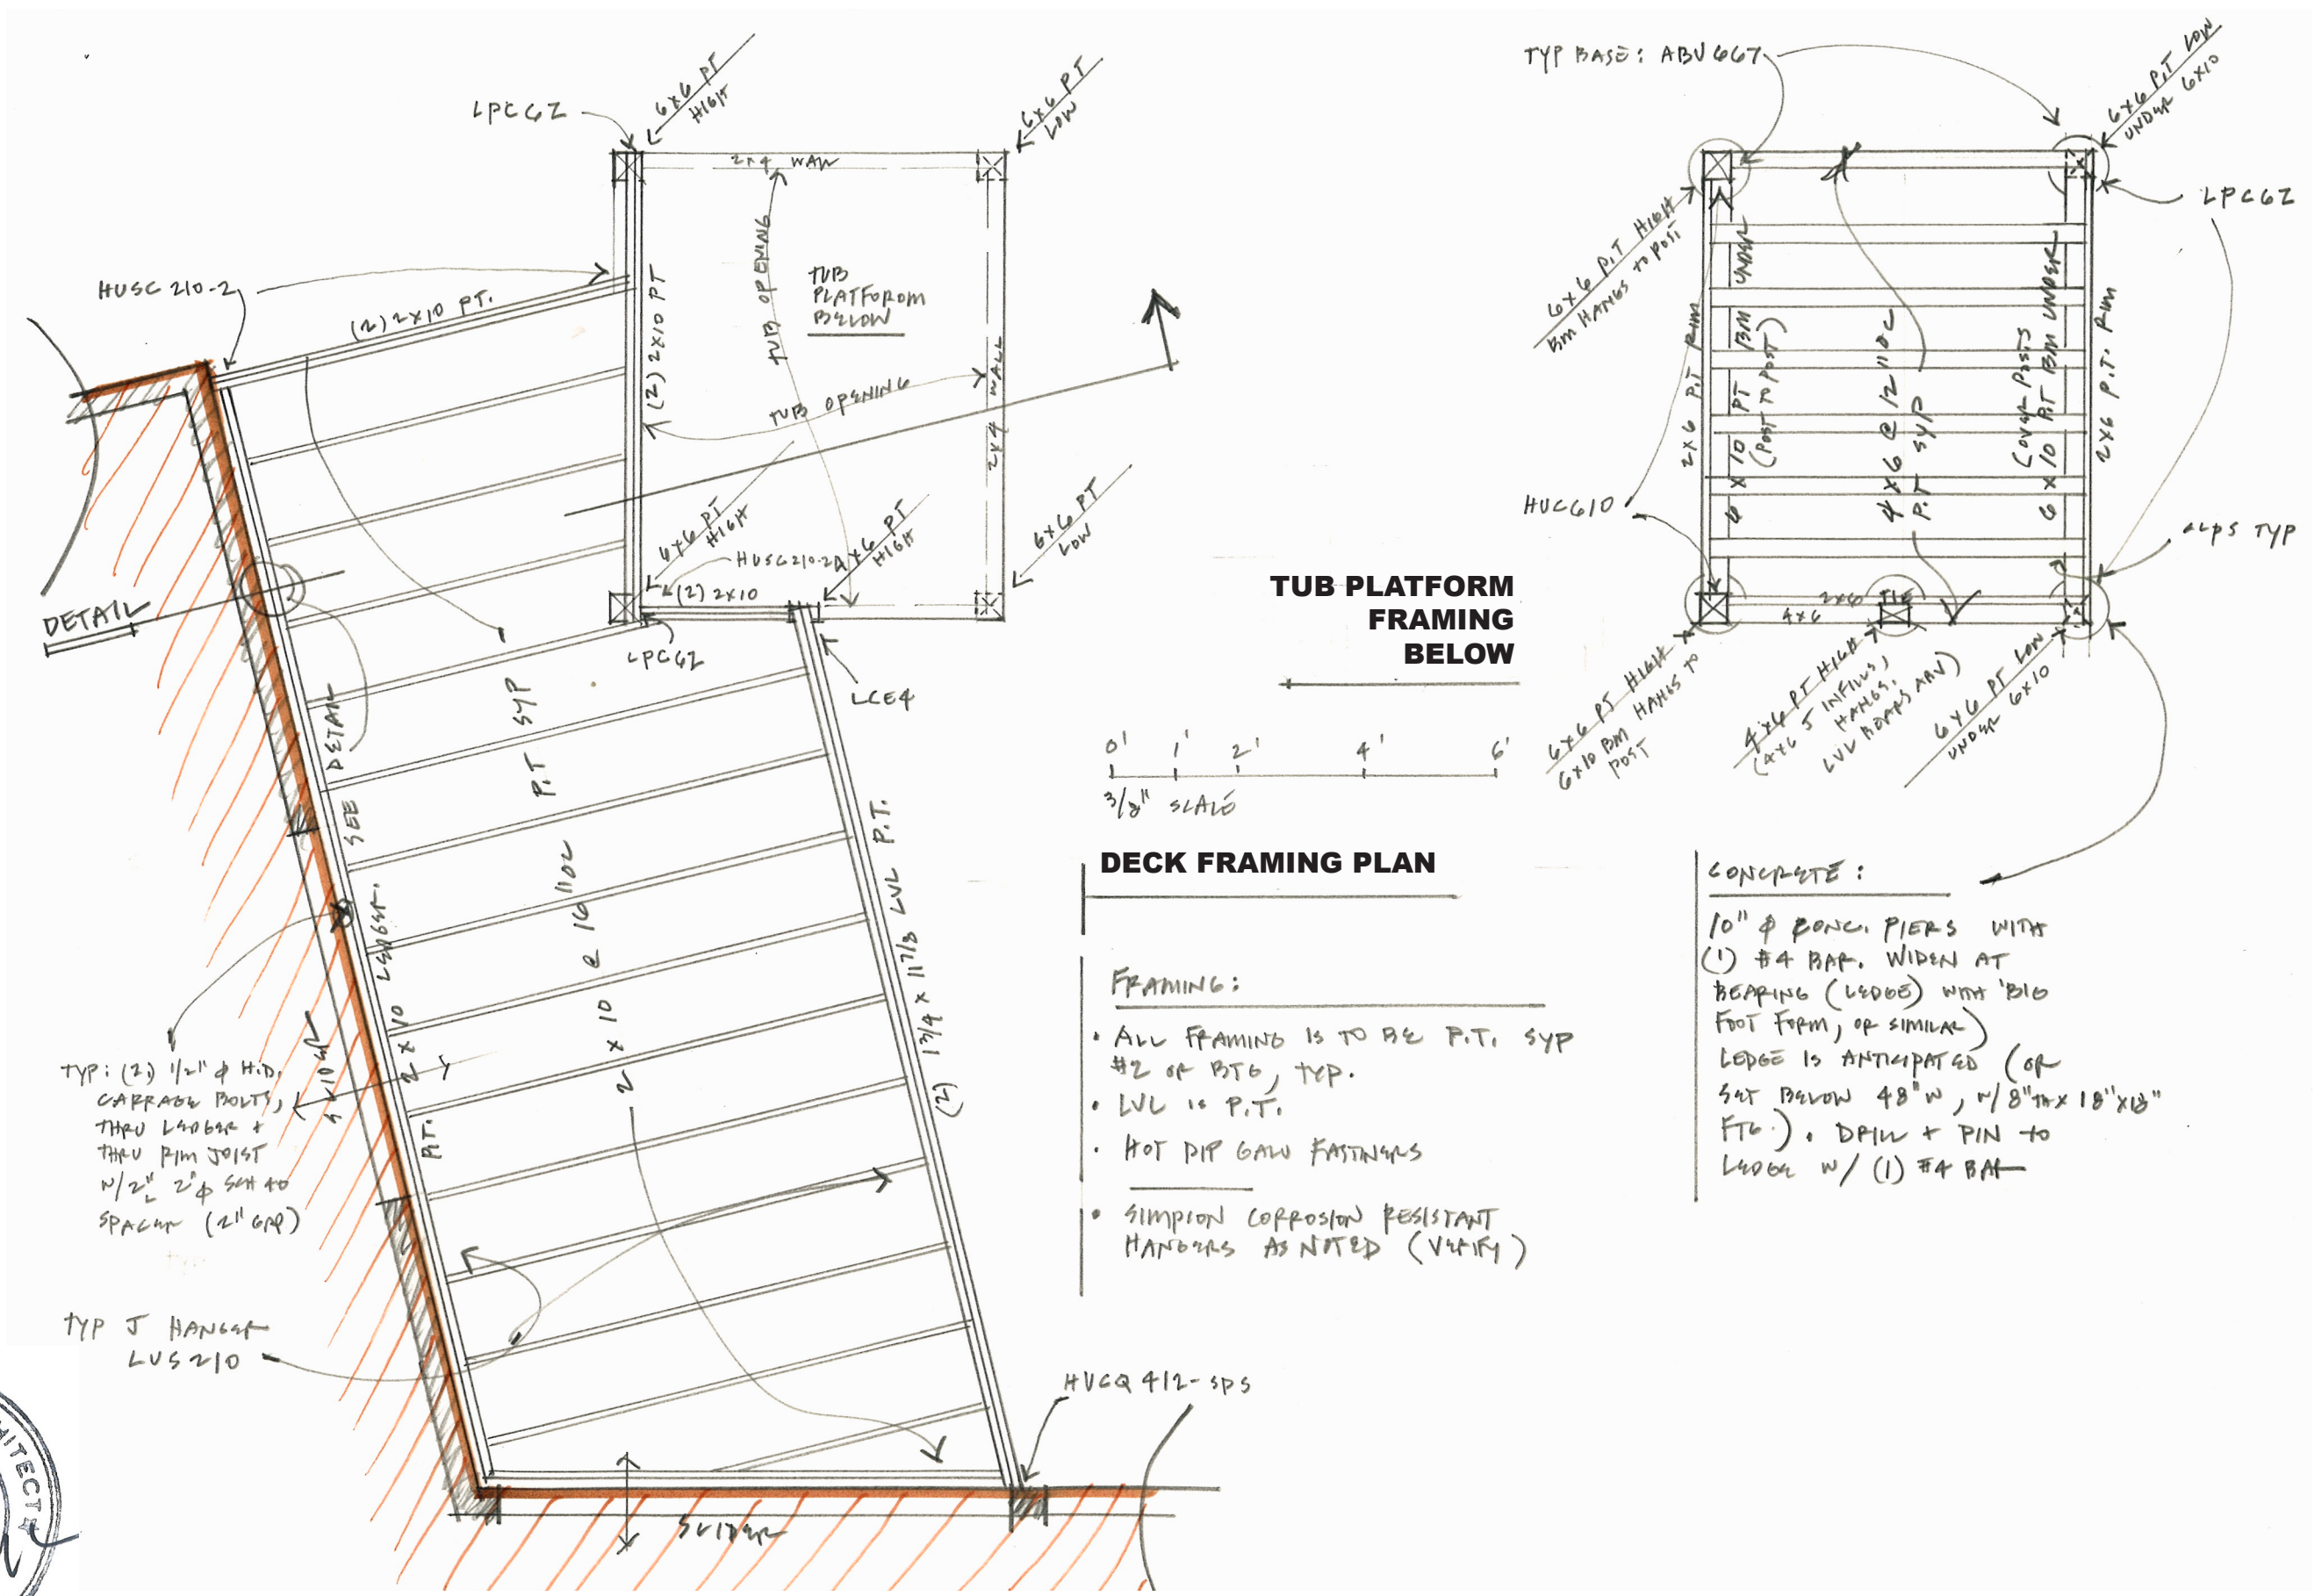 LPC6Z
6x6 PT
HIGH
6x6 PT
LOW
2x4 WALL
HUSC 210-2
(2) 2x10 PT.
(2) 2x10 PT
TUB OPENING
TUB
PLATFOROM
BELOW
TUB OPENING
2x4 WALL
6x6 PT
HIGH
HUSC210-2
4x6 PT
HIGH
6x6 PT
LOW
(2) 2x10
LPC6Z
LCE4
DETAIL
SEE DETAIL
P.T SYP
2x10 @ 16"OC
P.T. 2x10 LEDGER.
(2) 1 3/4 x 11 7/8 LVL P.T.
TYP: (2) 1/2" ϕ H.D.
CARRAGE BOLTS,
THRU LEDGER +
THRU RIM JOIST
W/2"L 2"ϕ SCH 40
SPACER (2" GAP)
TYP J HANGER
LUS210
HUCQ 412-SDS
SLIDER
HITECT
TYP BASE: ABU667
6x6 P.T LOW
UNDER 6x10
LPC6Z
6x6 P.T HIGH
BM HANGS TO POST
2x6 P.T RIM
6x10 PT BM UNDER
(POST TO POST)
4x6 @ 12"OC
P.T SYP
(OVER POSTS
6x10 P.T BM UNDER
2x6 P.T. RIM
HUC610
2x6 TIE
4x6
6x6 PT HIGH
6x10 BM HANGS TO
POST
4x6 PT HIGH
(4x6 J INFILLS,
HANGS,
LVL BOARS ABV)
6x6 PT LOW
UNDER 6x10
TUB PLATFORM
FRAMING
BELOW
0' 1' 2' 4' 6'
3/8" SCALE
DECK FRAMING PLAN
FRAMING:
• ALL FRAMING IS TO BE P.T. SYP
#2 OR BTG, TYP.
• LVL IS P.T.
• HOT DIP GALV FASTINERS
• SIMPSON CORROSION RESISTANT
HANGERS AS NOTED (VERIFY)
CONCRETE:
10" ϕ CONC. PIERS WITH
(1) #4 BAR. WIDEN AT
BEARING (LEDGE) WITH 'BIG
FOOT FORM, OR SIMILAR)
LEDGE IS ANTICIPATED (OR
SET BELOW 48"
W/8"TH x 18"x18"
FTG.). DRILL + PIN TO
LEDGE W/ (1) #4 BAR